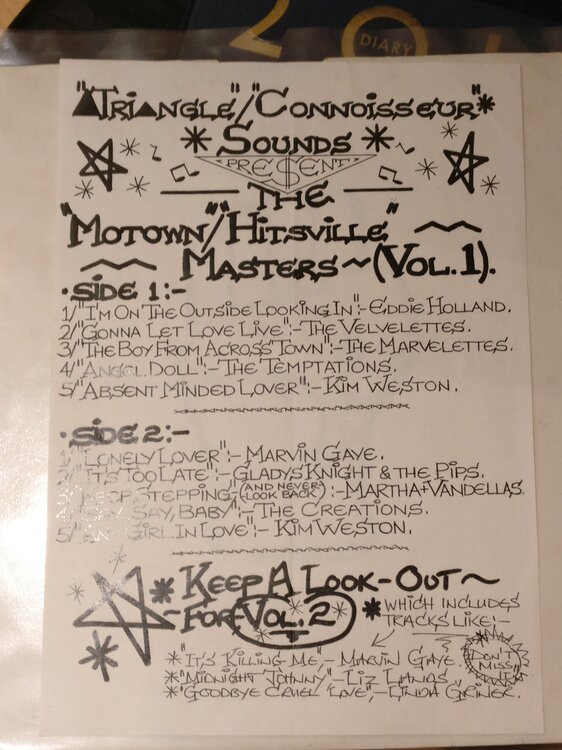 2 0 1
DIARY
"TRIANGLE"/"CONNOISSEUR"*
* SOUNDS *
"PRE$ENT"
THE
"MOTOWN"/"HITSVILLE"
MASTERS ~ (VOL. 1).
• SIDE 1:-
1/ "I'M ON THE OUTSIDE LOOKING IN":- EDDIE HOLLAND.
2/ "GONNA LET LOVE LIVE":- THE VELVELETTES.
3/ "THE BOY FROM ACROSS TOWN":- THE MARVELETTES.
4/ "ANGEL DOLL":- THE TEMPTATIONS.
5/ "ABSENT MINDED LOVER":- KIM WESTON.
• SIDE 2:-
"LONELY LOVER":- MARVIN GAYE.
"IT'S TOO LATE":- GLADYS KNIGHT & THE PIPS.
STEPPING (AND NEVER LOOK BACK) :- MARTHA + VANDELLAS.
SAY, BABY":- THE CREATIONS.
5/ GIRL IN LOVE":- KIM WESTON.
* KEEP A LOOK-OUT ~
~ FOR VOL. 2
* WHICH INCLUDES
TRACKS LIKE:-
* "IT'S KILLING ME",- MARVIN GAYE.
* "MIDNIGHT JOHNNY"- LIZ LANDS.
* "GOODBYE CRUEL LOVE",- LINDA GRINER.
DON'T
MISS
IT